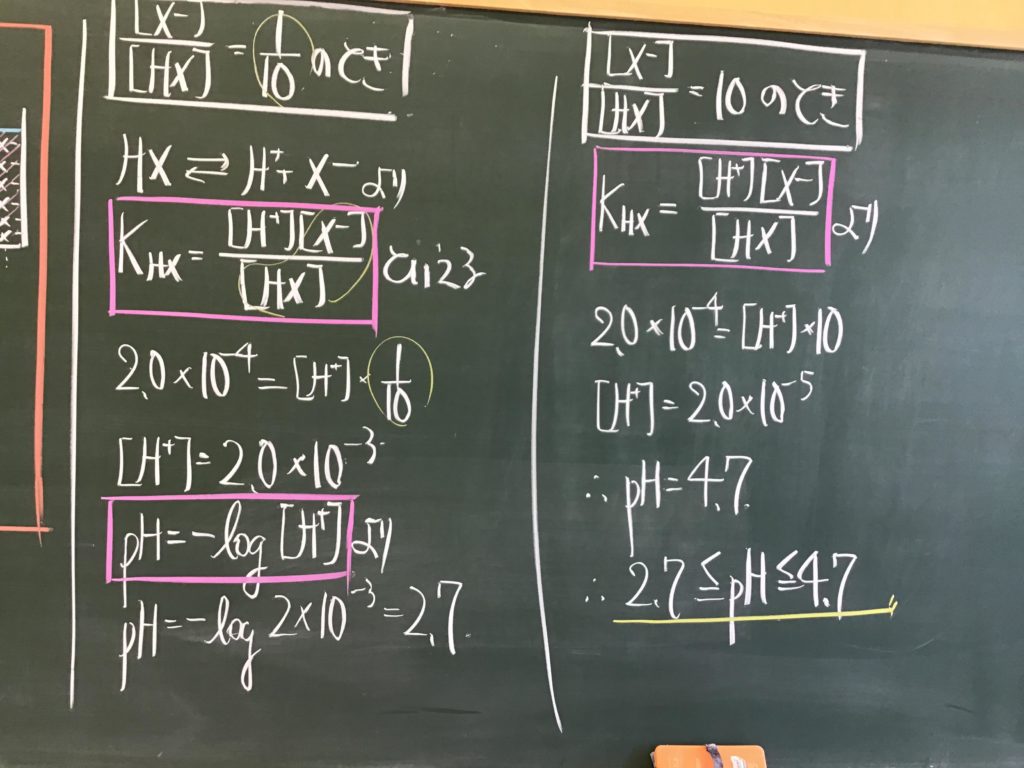 [X-]/[HX] = 1/10 のとき
HX ⇄ H+ + X- より
K_HX = [H+][X-]/[HX]
2.0×10^-4 = [H+]・1/10
[H+] = 2.0×10^-3
pH = -log [H+] より
pH = -log 2×10^-3 = 2.7
[X-]/[HX] = 10 のとき
K_HX = [H+][X-]/[HX] より
2.0×10^-4 = [H+]×10
[H+] = 2.0×10^-5
∴ pH = 4.7
∴ 2.7 ≦ pH ≦ 4.7